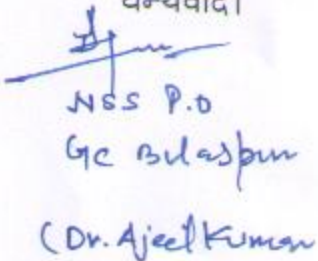 धन्यवाद।
NSS P.O
GC Bilaspur
(Dr. Ajeet Kumar